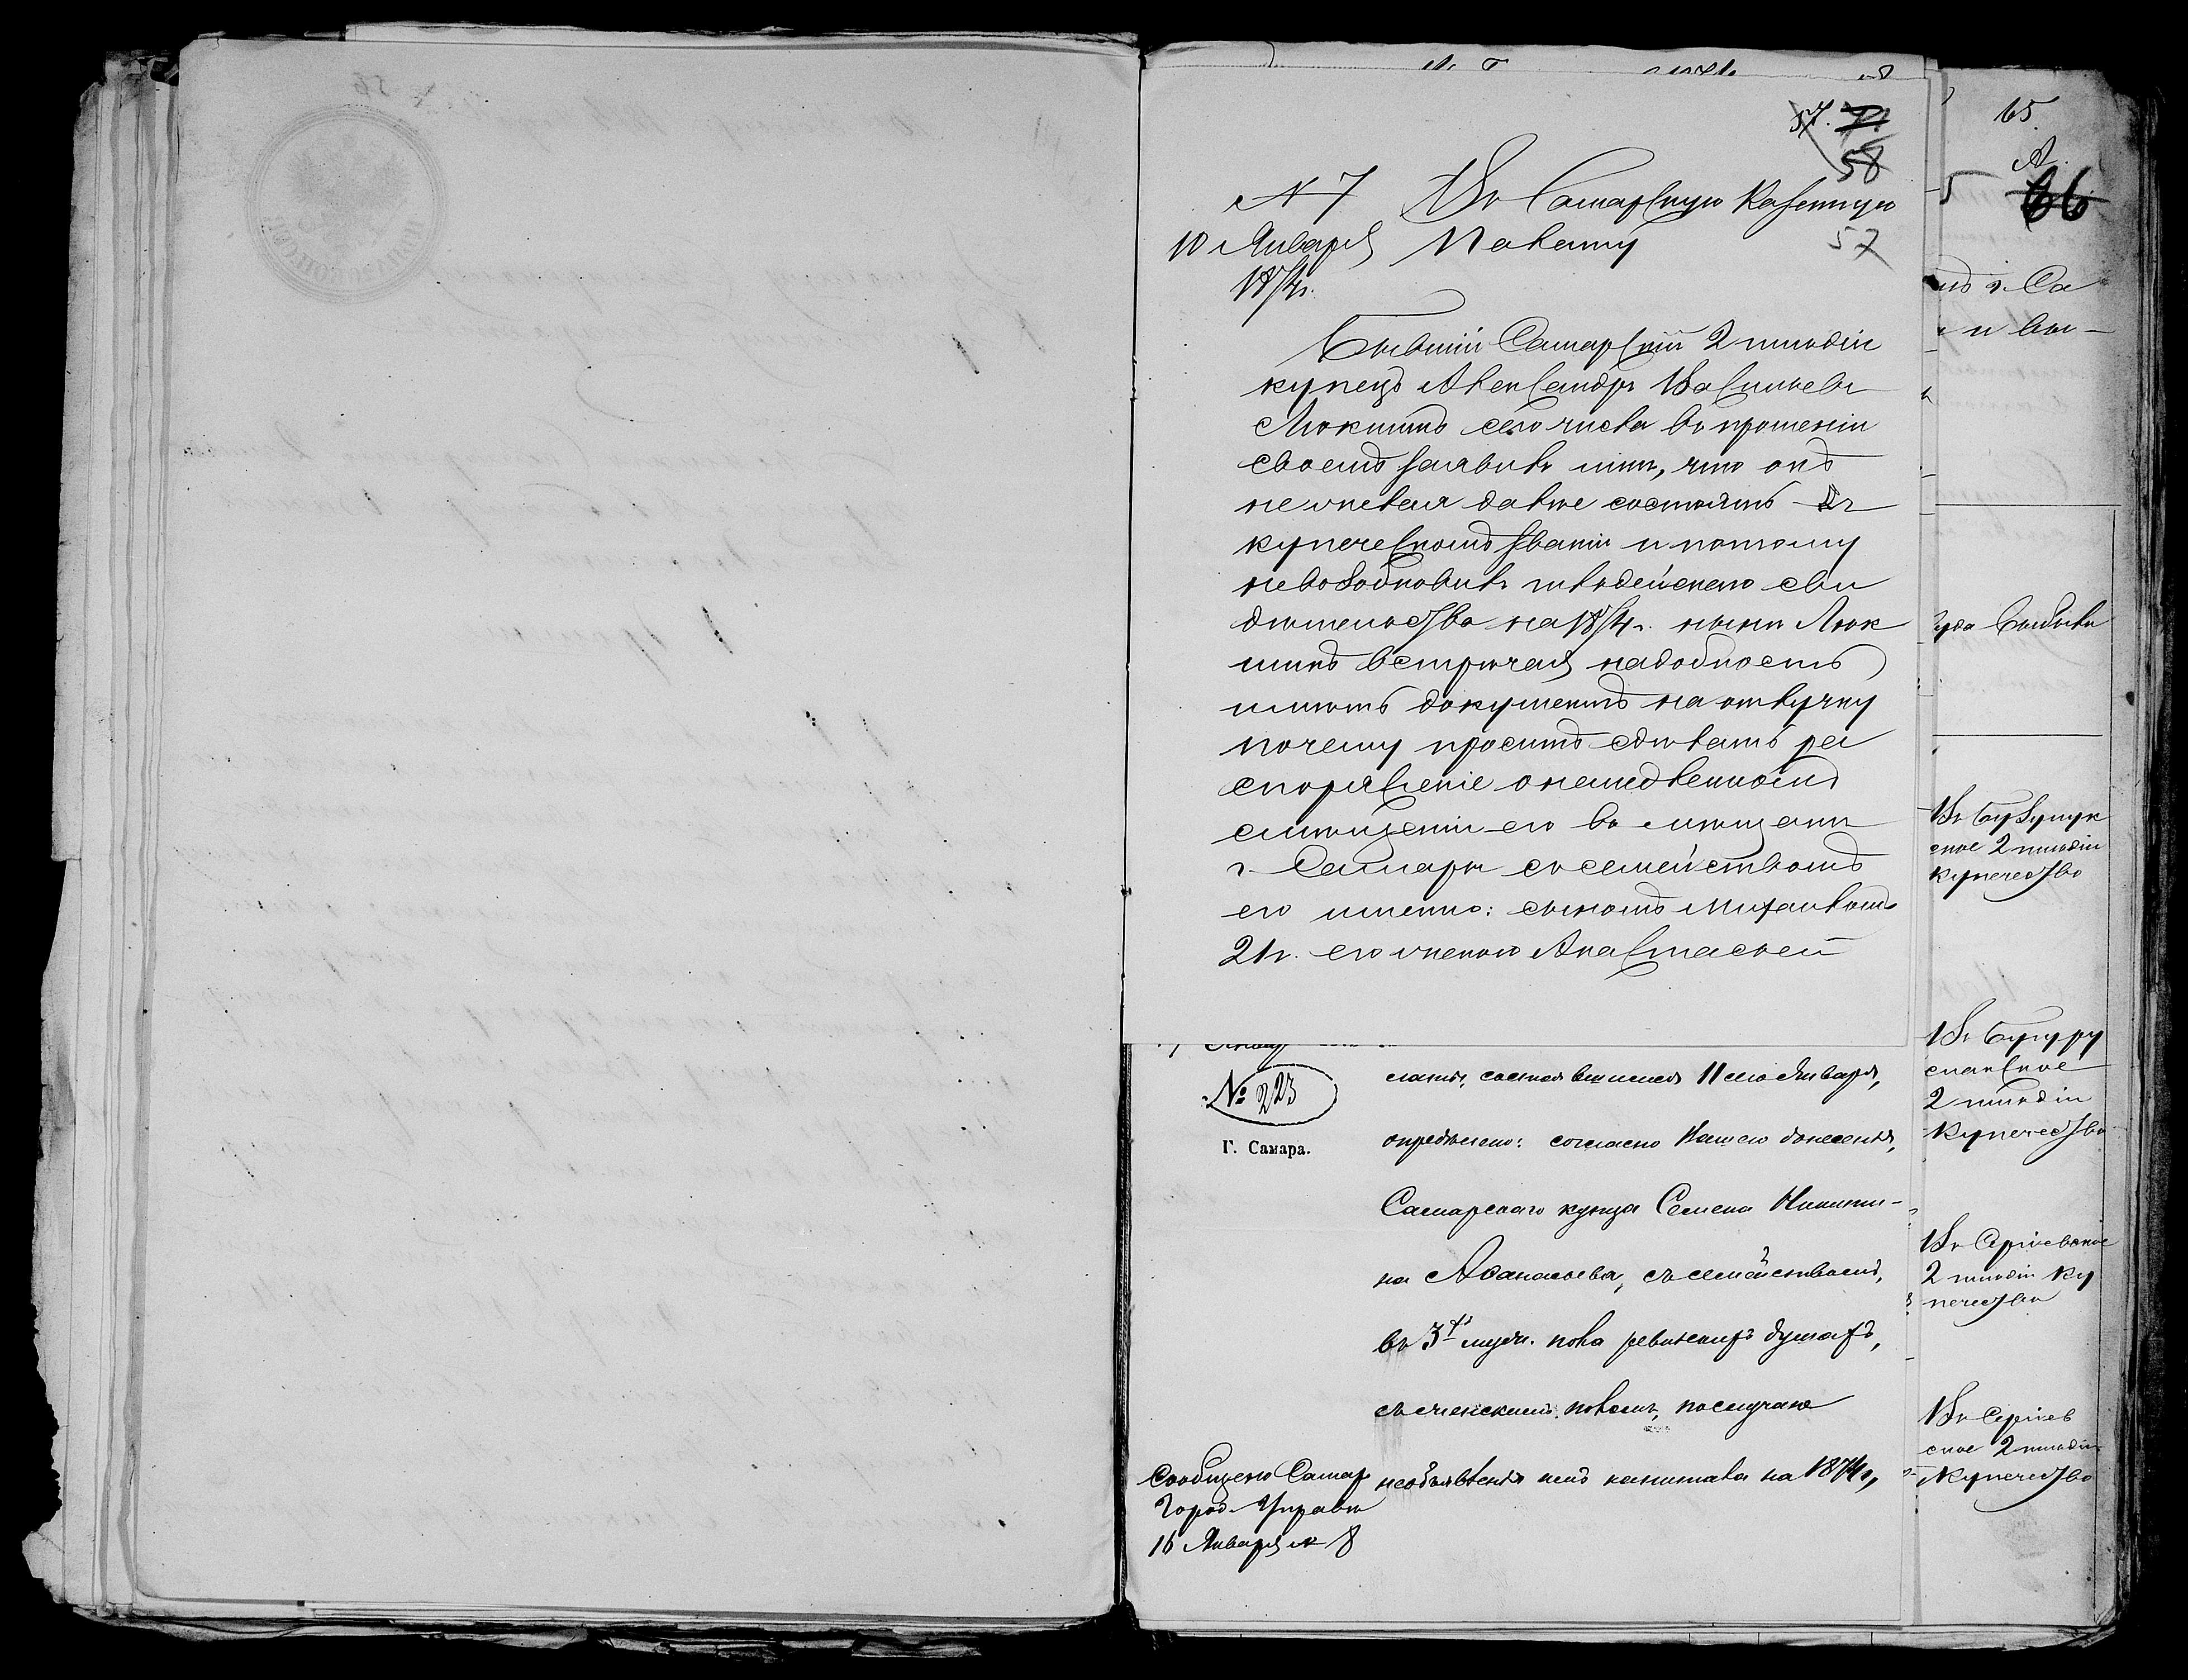 57. 71
58
№ 7 Въ Самарскую Казенную
10 Января Палату 57
1874г.
Бывшій Самарскій 2 гильдіи
купецъ Александръ Васильевъ
Люкшинъ сего числа въ прошеніи
своемъ заявилъ мнѣ, что онъ
не желая далѣе состоять въ
купеческомъ званіи и потому
невозобновилъ гильдейскаго сви
дѣтельства на 1874г. нынѣ Люк
шинъ встрѣчая надобность
имѣть документъ на отлучку
почему проситъ сдѣлать ра
споряженіе о немедленномъ
смѣщеніи его въ мѣщане
г. Самары съ семействомъ
его именно: сыномъ Михаиломъ
21г. его женою Анастасьей
№ 223
Г. Самара.
латы, состоявшимся 11 сего Января,
опредѣлено: согласно Вашего донесенія,
Самарскаго купца Семена Никити-
на Аѳанасьева, съ семействомъ,
въ 3хъ муж. пола ревизскихъ душахъ,
съ женскимъ поломъ, послучаю
необъявленія имъ капитала на 1874г,
Сообщено Самар
Город. Управѣ
16 Января № 8
65
А.
66
г. Са
и вы-
Въ Бузулук
ское 2 гильдіи
купечество
Въ Бугуру
сланское
2 гильдіи
Купечество
Въ Сергіевское
2 гильдіи ку
печество
Въ Сергіев
ское 2 гильдіи
Купечество